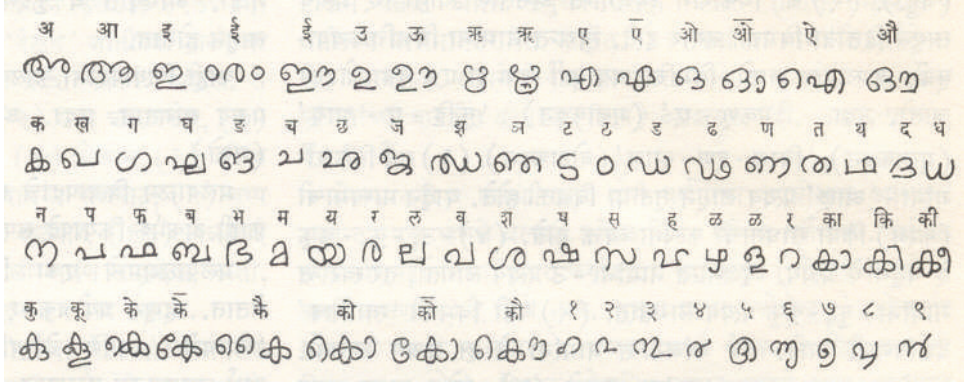 अ आ इ ई ई उ ऊ ऋ ॠ ए ए̄ ओ ओ̄ ऐ औ
അ ആ ഇ ൟ ഈ ഉ ഊ ഋ ൠ എ ഏ ഒ ഓ ഐ ഔ
क ख ग घ ङ च छ ज झ ञ ट ठ ड ढ ण त थ द ध
ക ഖ ഗ ഘ ങ ച ഛ ജ ഝ ഞ ട ഠ ഡ ഢ ണ ത ഥ ദ ധ
न प फ ब भ म य र ल व श ष स ह ळ ळ र का कि की
ന പ ഫ ബ ഭ മ യ ര ല വ ശ ഷ സ ഹ ഴ ള റ കാ കി കീ
कु कू के के̄ कै को को̄ कौ १ २ ३ ४ ५ ६ ७ ८ ९
കു കൂ കെ കേ കൈ കൊ കോ കൌ ൧ ൨ ൩ ൪ ൫ ൬ ൭ ൮ ൯